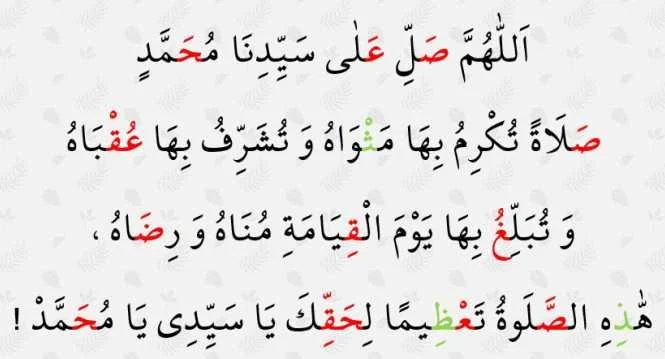 اَللّٰهُمَّ صَلِّ عَلٰى سَيِّدِنَا مُحَمَّدٍ
صَلَاةً تُكْرِمُ بِهَا مَثْوَاهُ وَ تُشَرِّفُ بِهَا عُقْبَاهُ
وَ تُبَلِّغُ بِهَا يَوْمَ الْقِيَامَةِ مُنَاهُ وَ رِضَاهُ ،
هٰذِهِ الصَّلَوةُ تَعْظِيمًا لِحَقِّكَ يَا سَيِّدِى يَا مُحَمَّدْ !